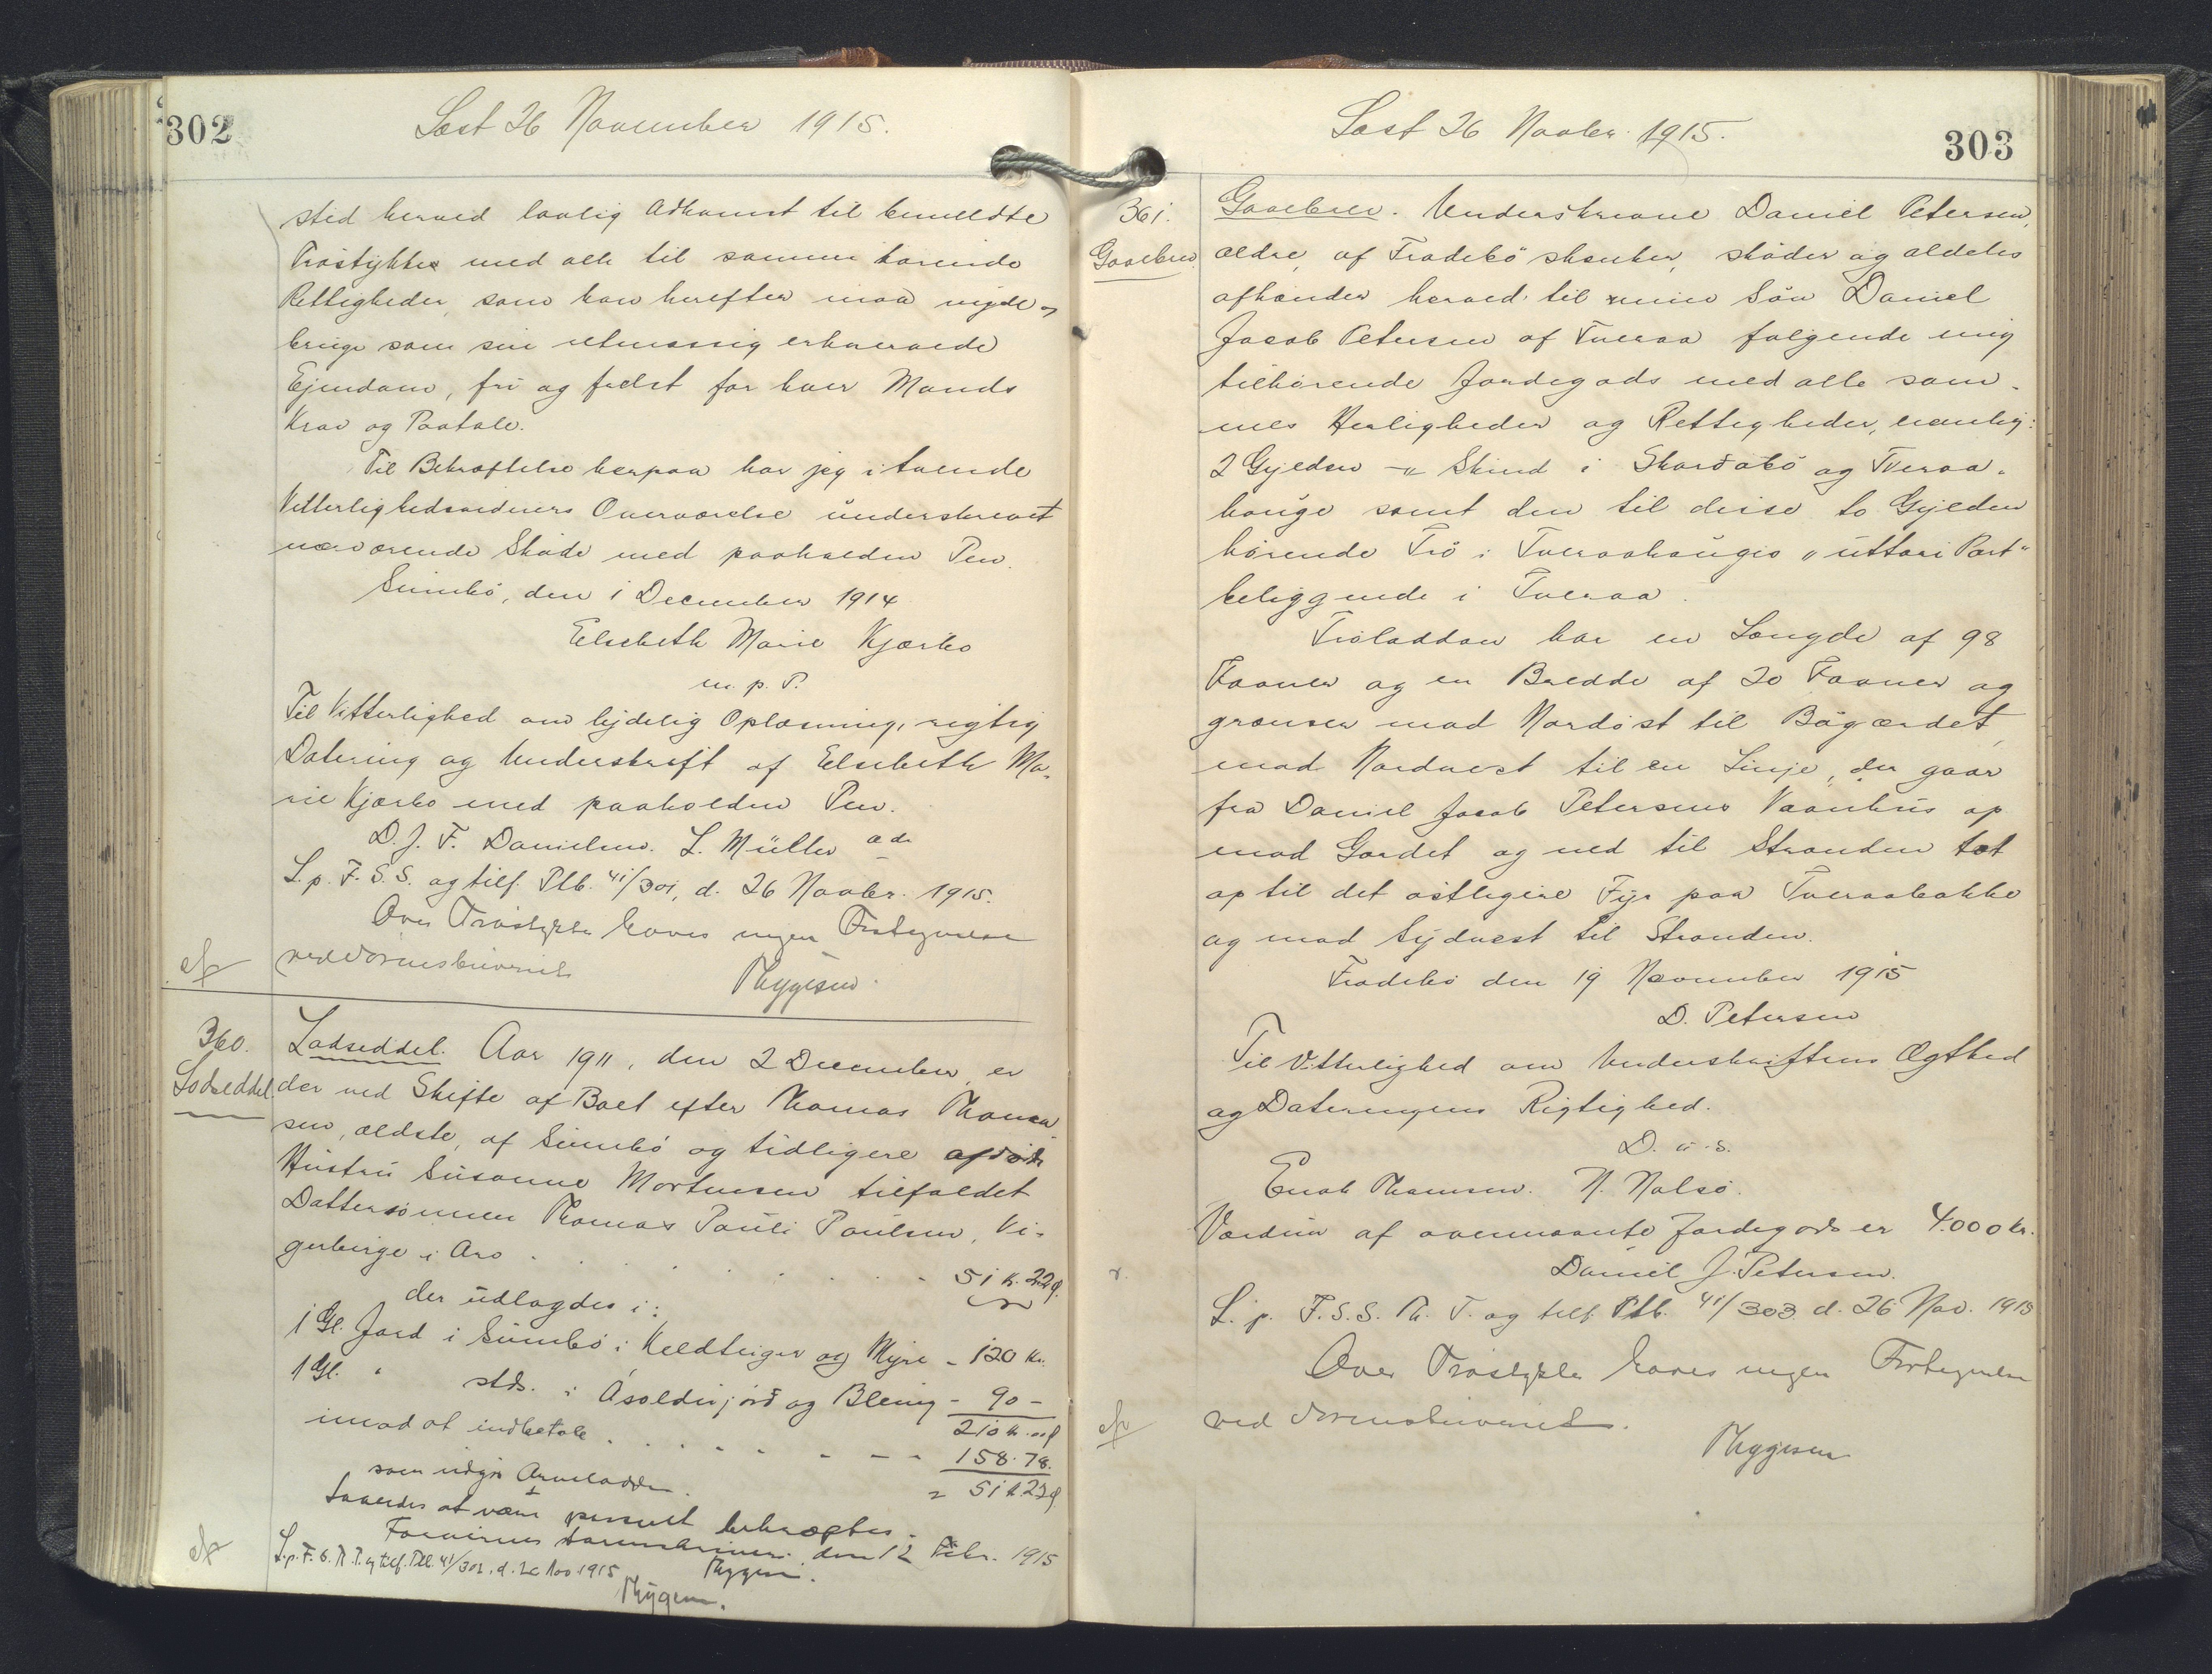 302
Læst 26 November 1915.
sted herved lovlig Adkomst til bemeldte
Trøstykke med alle til samme hørende
Rettigheder, som han herefter maa nyde og
bruge som sin retmæssig erhvervede
Ejendom, fri og frelst for hver Mands
Krav og Paatale.
Til Bekræftelse herpaa har jeg i tvende
Vitterlighedsvidners Overværelse underskrevet
nærværende Skøde med paaholden Pen.
Sumbø, den 1 December 1914
Elsebeth Marie Kjærbo
m. p. P.
Til Vitterlighed om lydelig Oplæsning, rigtig
Datering og Underskrift af Elsebeth Ma-
rie Kjærbo med paaholden Pen.
D. J. F. Danielsen. L. Müller
L. p. F. S. S. og tilf. Ptb. 41/301, d. 26 Novbr. 1915.
Over Trøstykke haves ingen Fortegnelse
ved Sorenskriveriet
Thygesen.
360.
Lodseddel.
Lodseddel. Aar 1911, den 2 December, er
der ved Skifte af Boet efter Thomas Thomas-
sen, ældste, af Sumbø og tidligere afdøde
Hustru Susanne Mortensen tilfaldet
Dattersønnen Thomas Pauli Poulsen, Vi-
gerbirge i Arv . . . . . . . 51 K. 22 Ø.
der udlagdes i:
1 Gl. Jord i Sumbø i Keldteiger og Myre - 120 Kr.
1 Gl. " stds. i Ásoldujørd og Bleing - 90 -
210 Kr. " Ø
imod at indbetale . . . . 158. 78.
som udgør Arvelodden. = 51 K 22 Ø
Saaledes at være passeret bekræftes.
Færøernes Sorenskriveri, den 12 Febr. 1915
Thygesen.
L. p. F. S. Th. T. og tilf. Ptb. 41/302, d. 26 Nov 1915
Thygesen.
Læst 26 Novbr. 1915.
303
361.
Gavebrev.
Gavebrev. Underskrevne Daniel Petersen,
ældre, af Frodebø skænker, skøder og aldeles
afhænder herved til min Søn Daniel
Jacob Petersen af Tveraa følgende mig
tilhørende Jordegods med alle sam-
mes Herligheder og Rettigheder, nemlig:
2 Gylden - " Skind i Skarðabø og Tveraa-
hauge samt den til disse to Gylden
hørende Trø i Tveraahauges "uttari Part"
beliggende i Tveraa.
Trøladden har en Længde af 98
Favner og en Bredde af 20 Favner og
grænser mod Nordøst til Bøgærdet,
mod Nordvest til en Linje, der gaar
fra Daniel Jacob Petersens Vaanhus op
mod Gærdet og ned til Stranden tæt
op til det østligere Fyr paa Tveraabakke
og mod Sydvest til Stranden.
Frodebø den 19 November 1915
D. Petersen
Til Vitterlighed om Underskriftens Ægthed
og Dateringens Rigtighed.
D. u. s.
Enok Thomsen. N. Nolsø.
Værdien af ovennævnte Jordegods er 4000 Kr.
Daniel J. Petersen.
L. p. F. S. S. Th. T. og tilf. Ptb. 41/303 d. 26 Nov. 1915
Over Trøstykke haves ingen Fortegnelse
ved Sorenskriveriet.
Thygesen